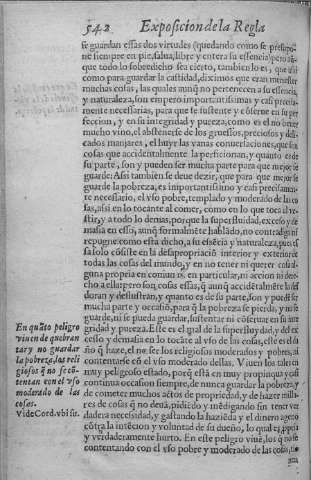 542 Exposicion de la Regla
se guardan essas dos virtudes (quedando como se presupo-
ne siempre en pie, salua, libre y entera su essencia) pero aũ-
que todo lo sobredicho sea cierto, tambien lo es, que assi
como para guardar la castidad, diximos que eran menester
muchas cosas, las quales aunq̃ no pertenecen a su essencia,
y naturaleza, son empero importantissimas y casi precisa-
mente necessarias, para que se sustente y cõserue en su per
feccion, y en su integridad y pureza; como es el no beuer
mucho vino, el abstenerse de los gruessos, preciosos y deli-
cados manjares, el huyr las vanas conuersaciones, que son
cosas que accidentalmente la perficionan, y quanto es de
su parte, son y pueden ser mucha parte para que mejor se
guarde: Assi tambien se deue dezir, que para que mejor se
guarde la pobreza, es importantissimo y casi precisamen-
te necessario, el vso pobre, templado y moderado de las co
sas, assi en lo tocante al comer, como en lo que toca al ve-
stir, y a todo lo demas, porque la superfluidad, excesso y de
masia en esso, aunq̃ formalmẽte hablãdo, no contradiga ni
repugne como esta dicho, a su essẽcia y naturaleza, pues es
sa solo cõsiste en la desapropriaciõ interior y exterior de
todas las cosas del mundo, y en no tener ni querer cosa al-
guna propria en comun ni en particular, ni accion ni dere-
cho a ella: pero son cosas essas, q̃ aunq̃ accidẽtalmẽte la des
doran y deslustran, y quanto es de su parte, son y puedẽ ser
mucha parte y ocasiõ, para q̃ la pobreza se pierda, y no se
guarde, ni se pueda guardar, sustentar ni cõseruar en su inte
gridad y pureza. Este es el mal de la superfluydad, y del ex
cesso y demasia en lo tocãte al vso de las cosas, este es el da
ño q̃ haze, el no ser los religiosos moderados y pobres, ni
contentarse cõ el vso moderado dellas. Viuen los tales en
muy peligroso estado, porq̃ està en muy propinqua y casi
continua occasion siempre, de nunca guardar la pobreza, y
de cometer muchos actos de propriedad, y de hazer milla-
res de cosas q̃ no deuã, pidiẽdo y mẽdigando sin tener ver
dadera necessidad, y gastando la haziẽda y el dinero ageno
cõtra la intẽcion y voluntad de su dueño, lo qual es propia
y verdaderamente hurto. En este peligro viuẽ, los q̃ no se
contentando con el vso pobre y moderado de las cosas,
En quãto peligro
viuen de quebran
tar y no guardar
la pobreza, los reli
giosos q̃ no se cõ-
tentan con el vso
moderado de las
cosas.
Vide Cord. vbi su.